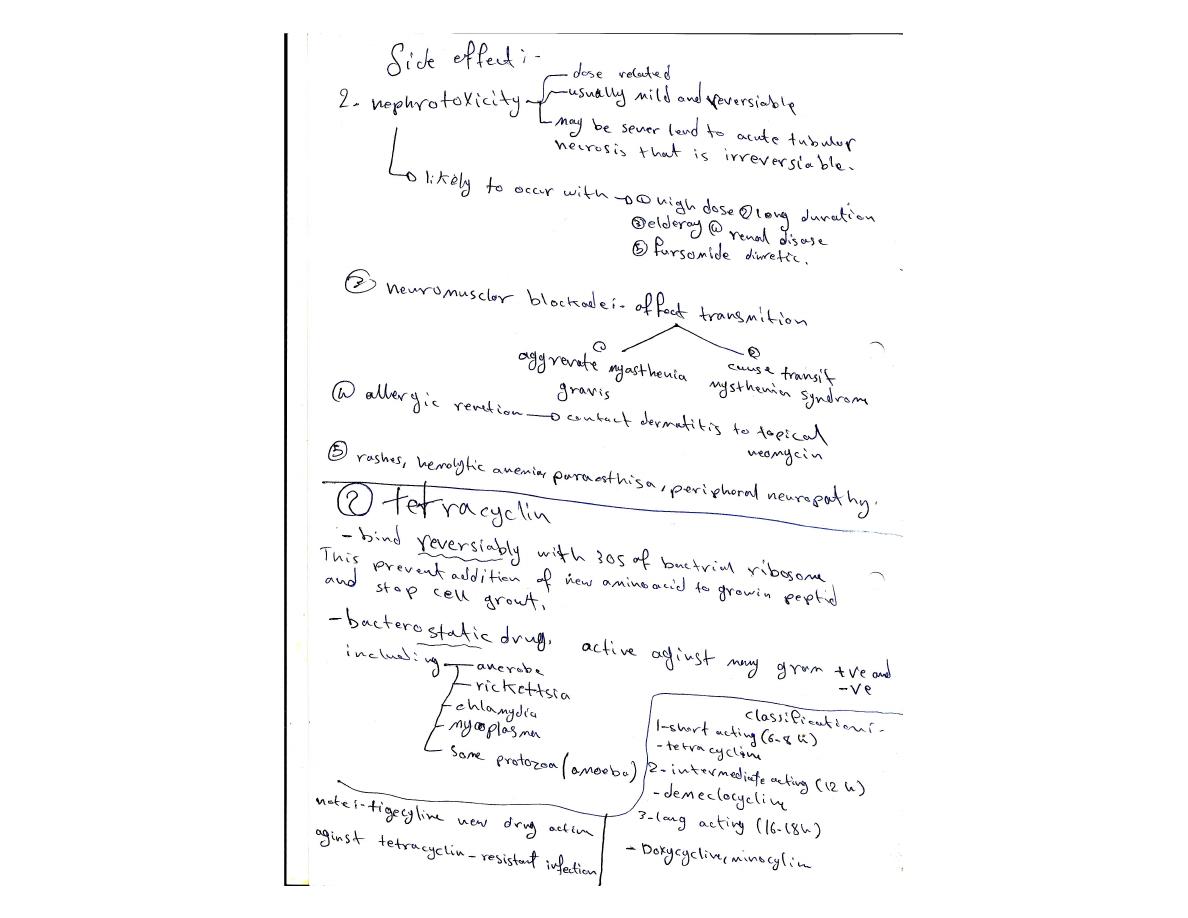 Side effect:-
2- nephrotoxicity
dose related
usually mild and reversiable
may be sever lead to acute tubular
necrosis that is irreversiable.
likely to occur with → ① high dose ② long duration
③ elderay ④ renal disase
⑤ fursomide diuretic.
③ neuromusclor blockade:- affect transmition
① aggrevate myasthenia
gravis
② cause transit
mysthenia syndrome
④ allergic reaction → contact dermatitis to topical
neomycin
⑤ rashes, hemolytic anemia, paraesthisa, peripheral neuropathy.
② tetracyclin
- bind reversiably with 30S of bactrial ribosome
This prevent addition of new amino acid to growin peptid
and stop cell growt.
- bacterostatic drug. active aginst many gram +ve and
-ve
including
anerobe
rickettsia
chlamydia
mycoplasma
Some protozoa (amoeba)
classification:-
1-short acting (6-8 h)
- tetracycline
2- intermediate acting (12 h)
- demeclocycline
3-long acting (16-18h)
- Doxycycline, minocylin
note:- tigecyline new drug action
aginst tetracyclin-resistant infection